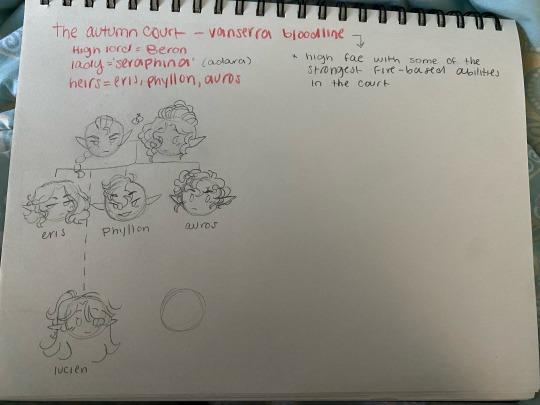 the autumn court - vanserra bloodline
High lord = Beron
lady = 'seraphina' (adara)
heirs = eris, phyllon, auros
* high fae with some of the
strongest fire-based abilities
in the court
eris
phyllon
auros
lucien